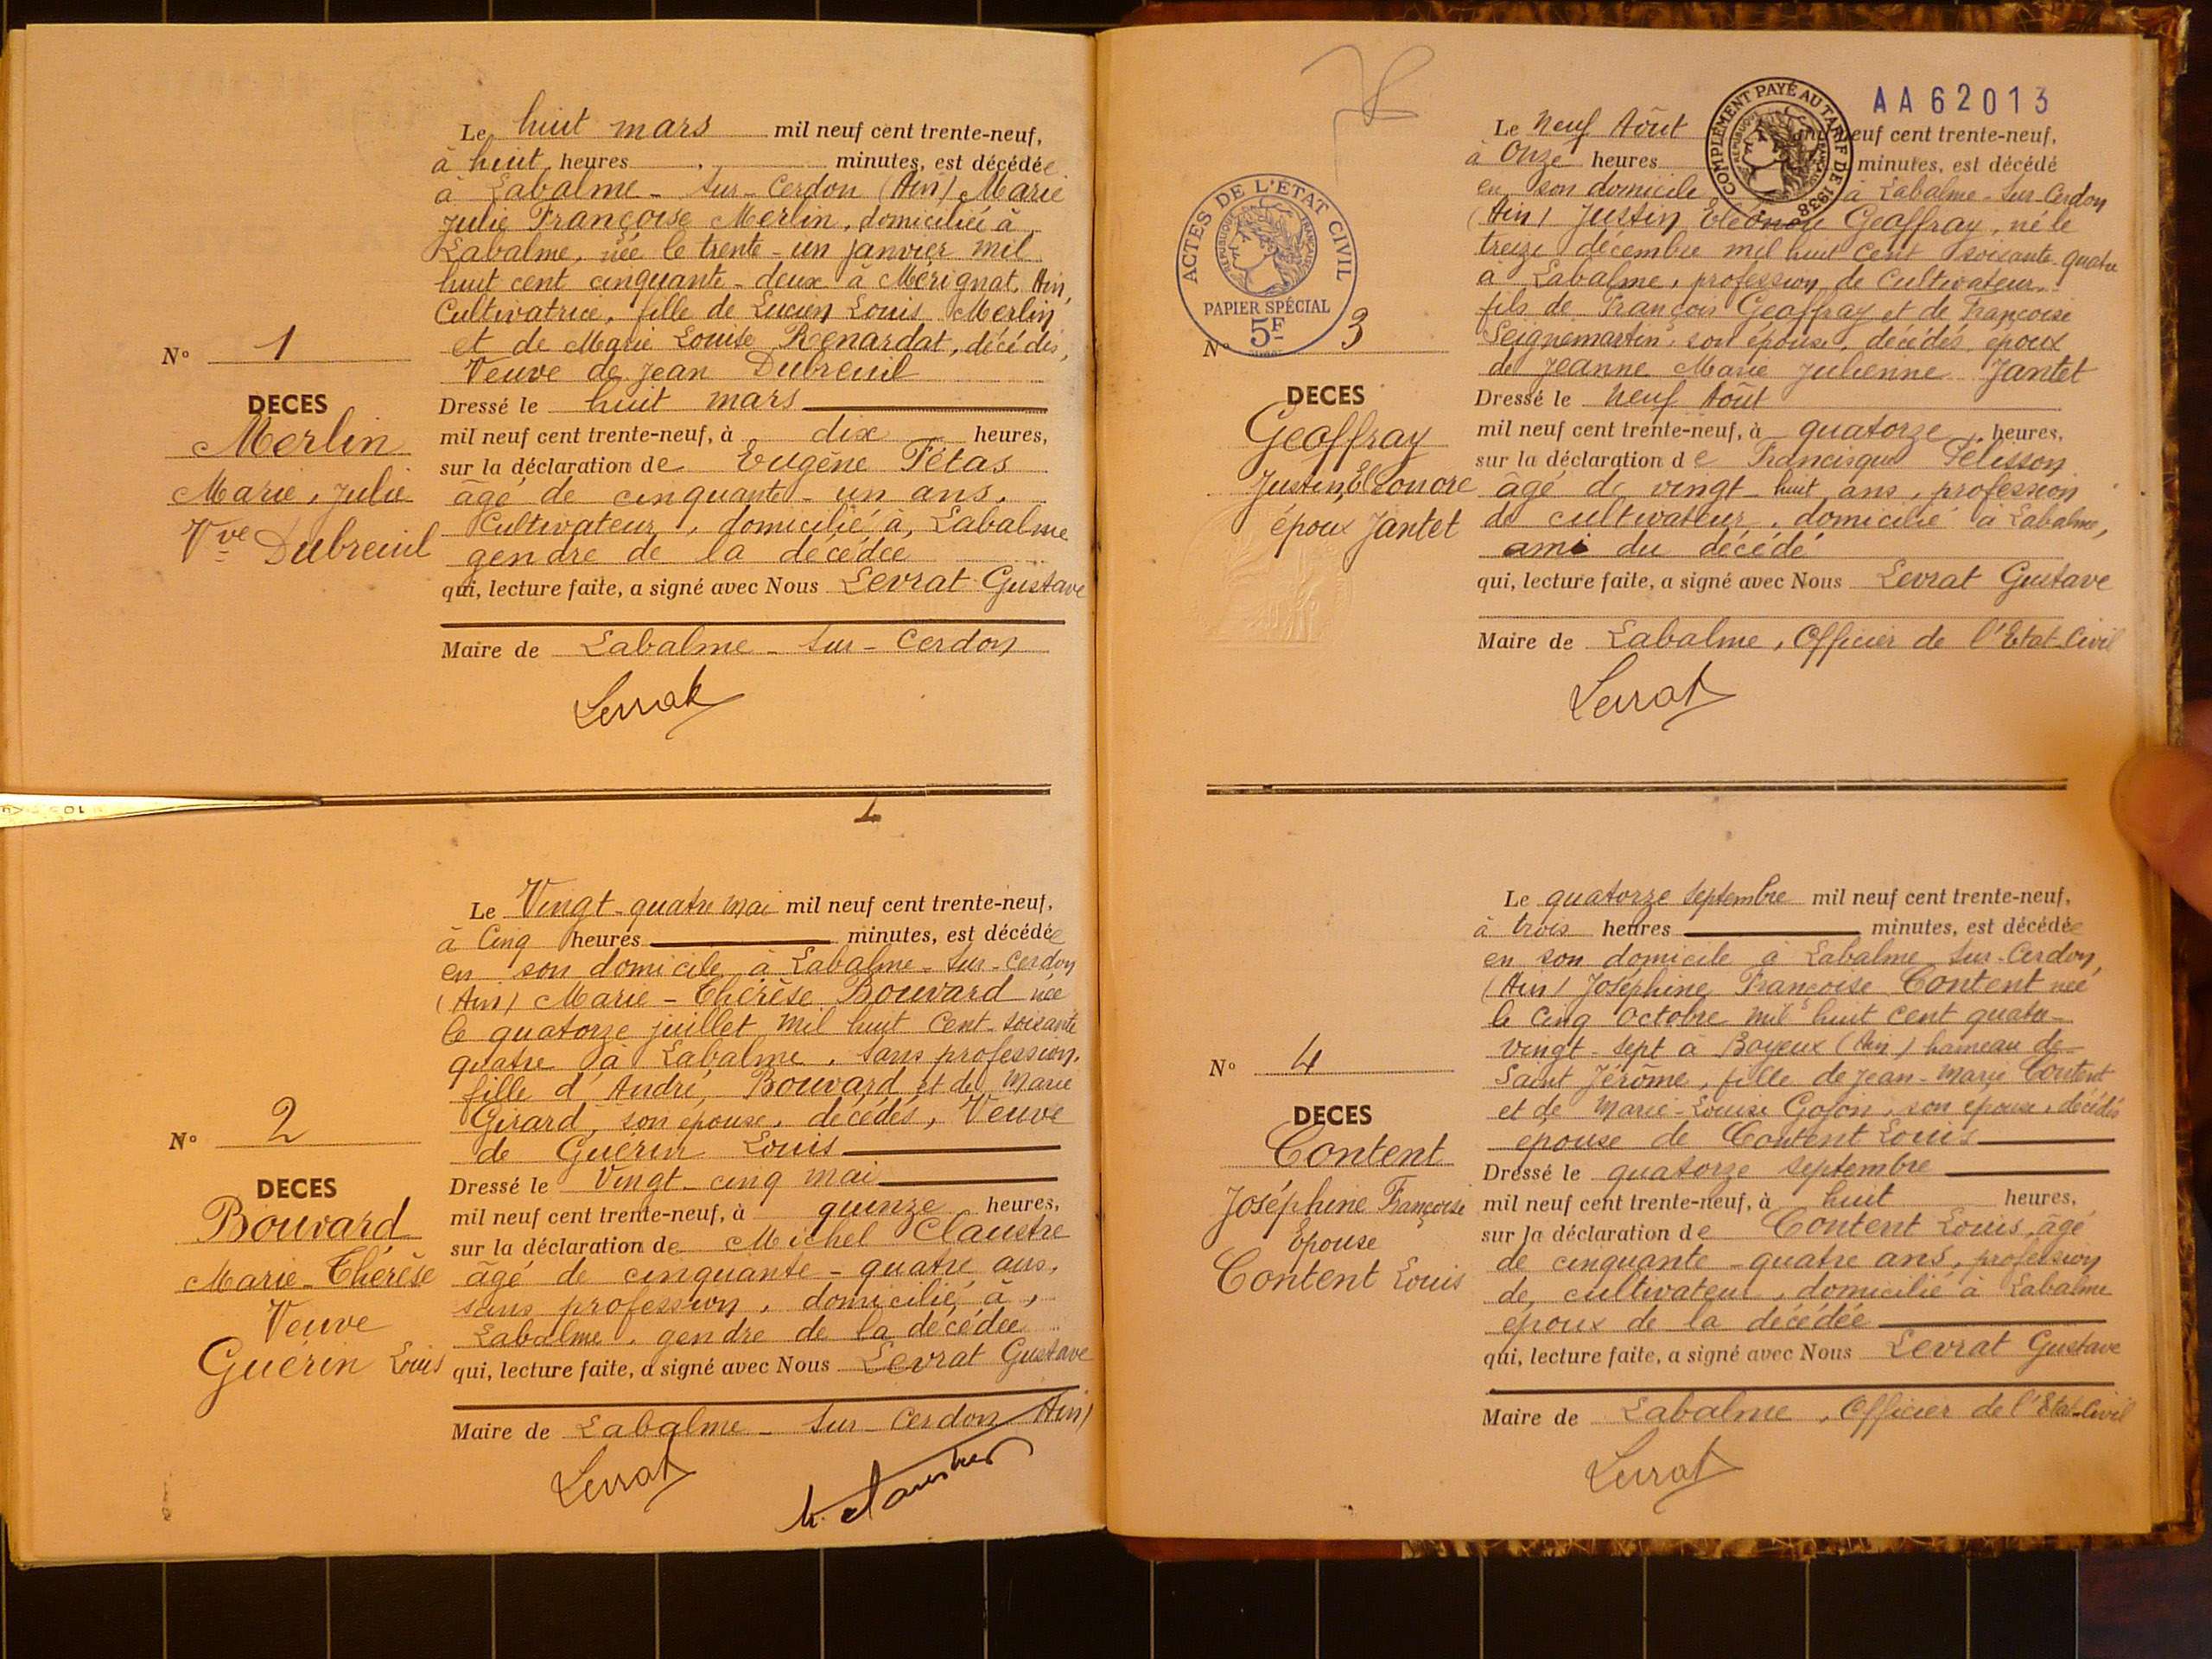 Le huit mars mil neuf cent trente-neuf,
à huit heures minutes, est décédée
à Labalme-sur-Cerdon (Ain) Marie
Julie Françoise Merlin, domiciliée à
Labalme, née le trente-un janvier mil
huit cent cinquante-deux à Mérignat, Ain,
Cultivatrice, fille de Lucien Louis Merlin
et de Marie Louise Renardat, décédés,
Veuve de Jean Dubreuil
N° 1
DECES
Merlin
Marie, Julie
Vve Dubreuil
Dressé le huit mars
mil neuf cent trente-neuf, à dix heures,
sur la déclaration de Eugène Fétas
âgé de cinquante-un ans,
Cultivateur, domicilié à, Labalme
gendre de la décédée
qui, lecture faite, a signé avec Nous Levrat Gustave
Maire de Labalme-sur-Cerdon
Levrat
105
Le Vingt-quatre mai mil neuf cent trente-neuf,
à Cinq heures minutes, est décédée
en son domicile à Labalme-sur-Cerdon
(Ain) Marie-Thérèse Bouvard née
le quatorze juillet mil huit cent-soixante
quatre à Labalme, sans profession,
fille d'André Bouvard et de Marie
Girard, son épouse, décédés, Veuve
de Guérin Louis
N° 2
DECES
Bouvard
Marie-Thérèse
Veuve
Guérin Louis
Dressé le Vingt-cinq mai
mil neuf cent trente-neuf, à quinze heures,
sur la déclaration de Michel Claustre
âgé de cinquante-quatre ans,
sans profession, domicilié à,
Labalme, gendre de la décédée
qui, lecture faite, a signé avec Nous Levrat Gustave
Maire de Labalme-sur-Cerdon Ain)
Levrat
AA62013
COMPLÉMENT PAYÉ AU TARIF DE 1938
ACTES DE L'ETAT CIVIL
REPUBLIQUE FRANÇAISE
PAPIER SPÉCIAL
5F
Le Neuf Août neuf cent trente-neuf,
à Onze heures minutes, est décédé
en son domicile à Labalme-sur-Cerdon
(Ain) Justin Eléonore Geoffray, né le
treize décembre mil huit cent soixante-quatre
à Labalme, profession de Cultivateur,
fils de François Geoffray et de Françoise
Seignemartin, son épouse, décédés, époux
de Jeanne Marie Julienne Jantet
N° 3
DECES
Geoffray
Justin, Eléonore
époux Jantet
Dressé le Neuf Août
mil neuf cent trente-neuf, à quatorze heures,
sur la déclaration de Francisque Pélisson
âgé de vingt-huit ans, profession
de cultivateur, domicilié à Labalme,
ami du décédé
qui, lecture faite, a signé avec Nous Levrat Gustave
Maire de Labalme, Officier de l'Etat-Civil
Levrat
Le quatorze septembre mil neuf cent trente-neuf,
à trois heures minutes, est décédée
en son domicile à Labalme-sur-Cerdon,
(Ain) Joséphine Françoise Content née
le Cinq Octobre mil huit cent quatre-
vingt-sept à Boyeux (Ain) hameau de
Saint Jérôme, fille de Jean-Marie Content
et de Marie-Louise Gojon, son épouse, décédés
épouse de Content Louis
N° 4
DECES
Content
Joséphine Françoise
Epouse
Content Louis
Dressé le quatorze septembre
mil neuf cent trente-neuf, à huit heures,
sur la déclaration de Content Louis, âgé
de cinquante-quatre ans, profession
de cultivateur, domicilié à Labalme
époux de la décédée
qui, lecture faite, a signé avec Nous Levrat Gustave
Maire de Labalme, Officier de l'Etat-Civil
Levrat